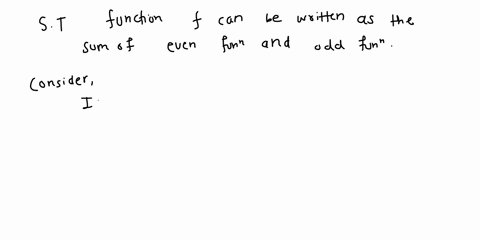 S.T function f can be written as the
sum of even funⁿ and odd funⁿ.
Consider,
I